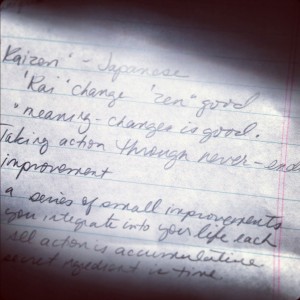 Kaizen" - Japanese
'Kai' change 'zen" good
"meaning - change is good.
Taking action through never-end
improvement
a series of small improvements
you integrate into your life each
all action is accumulative
secret ingredient is time